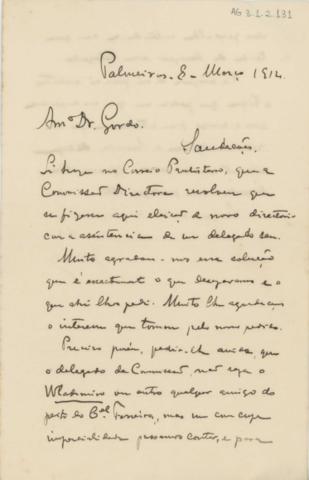 AG 3.1.2.131
Palmeiras - 8 - Março 1912
Amº Dr. Gordo.
Saudações.
Li hoje no Correio Paulistano, que a
Commissão Directora resolveu que
se fizesse aqui eleição de novo directorio
com a assistencia de um delegado seu.
Muito agradou-nos essa solução
que é exactamente o que desejavamos e o
que ahi lhe pedi. Muito lhe agradeço
o interesse que tomou pelo nosso pedido.
Preciso porém, pedir-lhe ainda, que
o delegado da Commissão, não seja o
Wladimiro ou outro qualquer amigo do
peito do Cel. Ferreira, mas um com cuja
imparcialidade possamos contar, e para